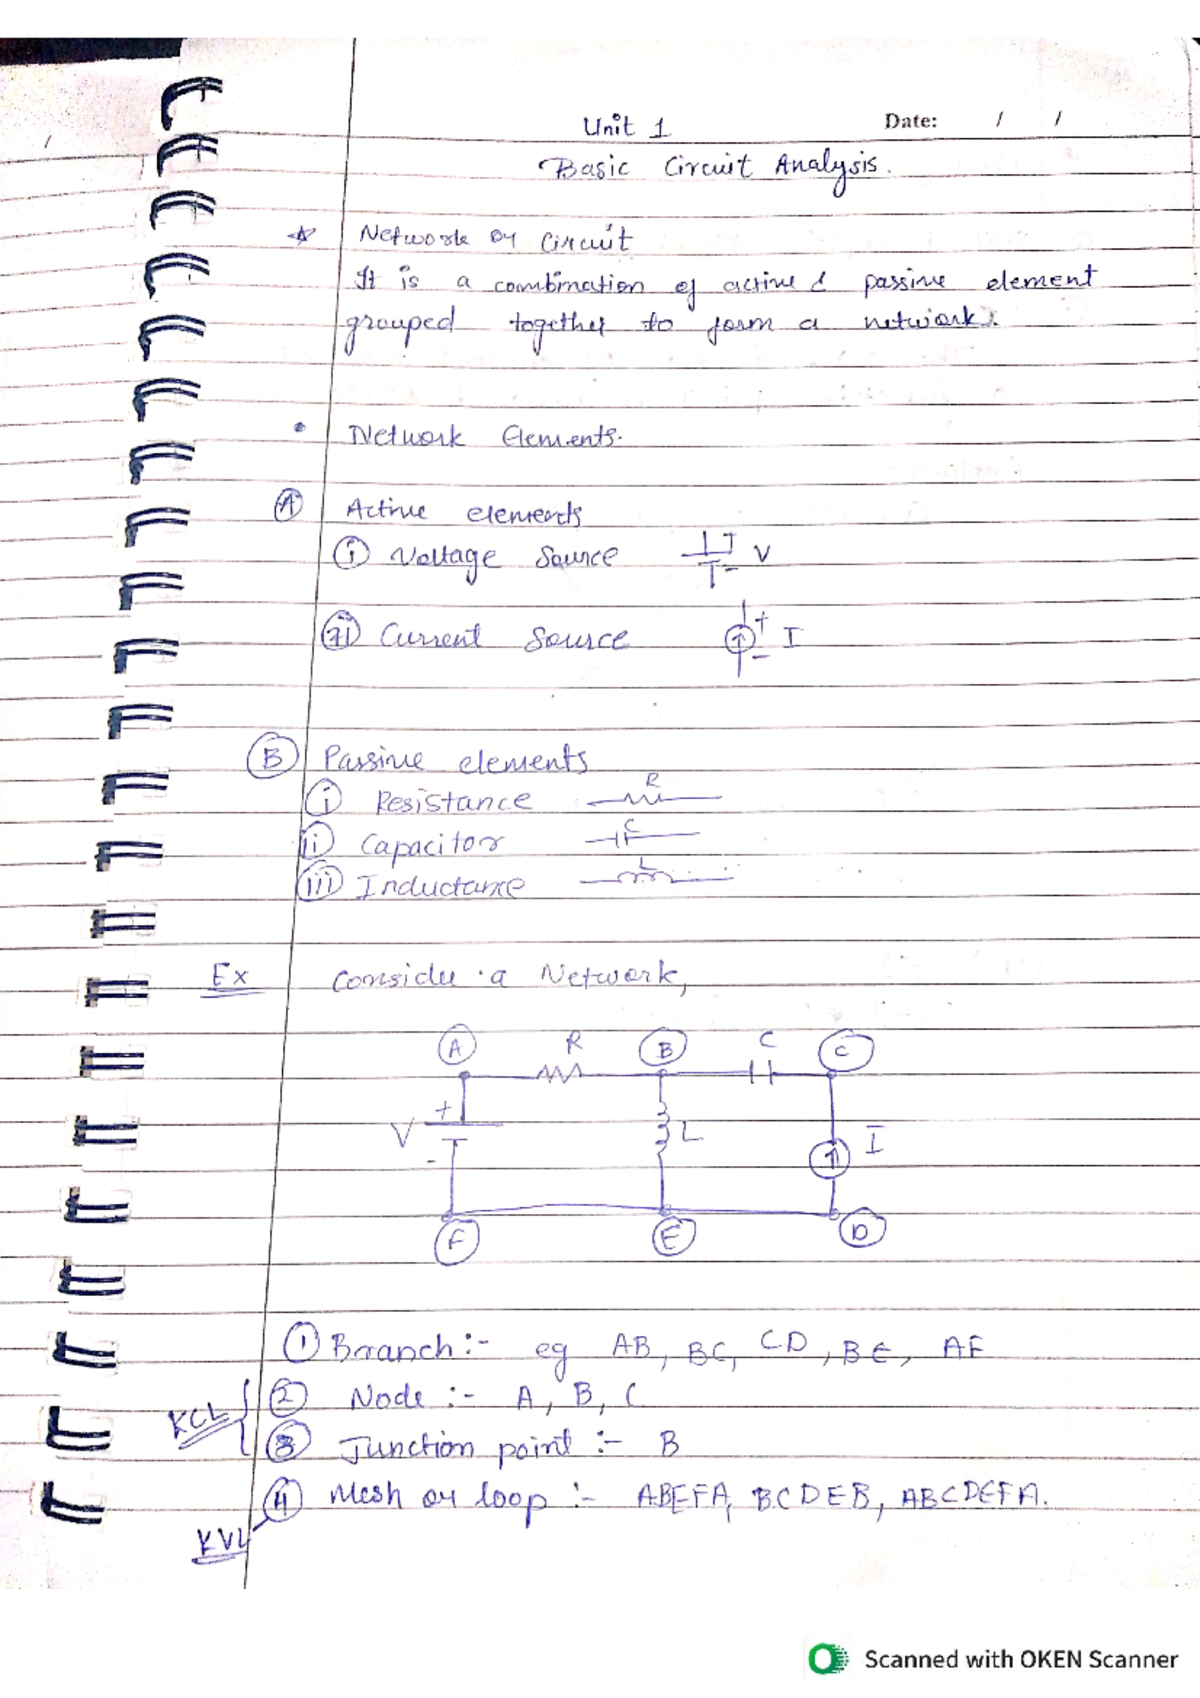 Unit 1
Date: / /
Basic Circuit Analysis.
Network or Circuit
It is a combination of active & passive element
grouped together to form a network.
• Network Elements.
A Active elements
i Voltage Source V
ii Current Source + - I
B Passive elements
i Resistance R
ii Capacitor C
iii Inductance L
Ex Consider a Network,
A R B C C
V + - L I
F E D
1 Branch :- eg AB, BC, CD, BE, AF
2 Node :- A, B, C
KCL
3 Junction point :- B
4 Mesh or loop :- ABEFA, BCDEB, ABCDEFA.
KVL
Scanned with OKEN Scanner